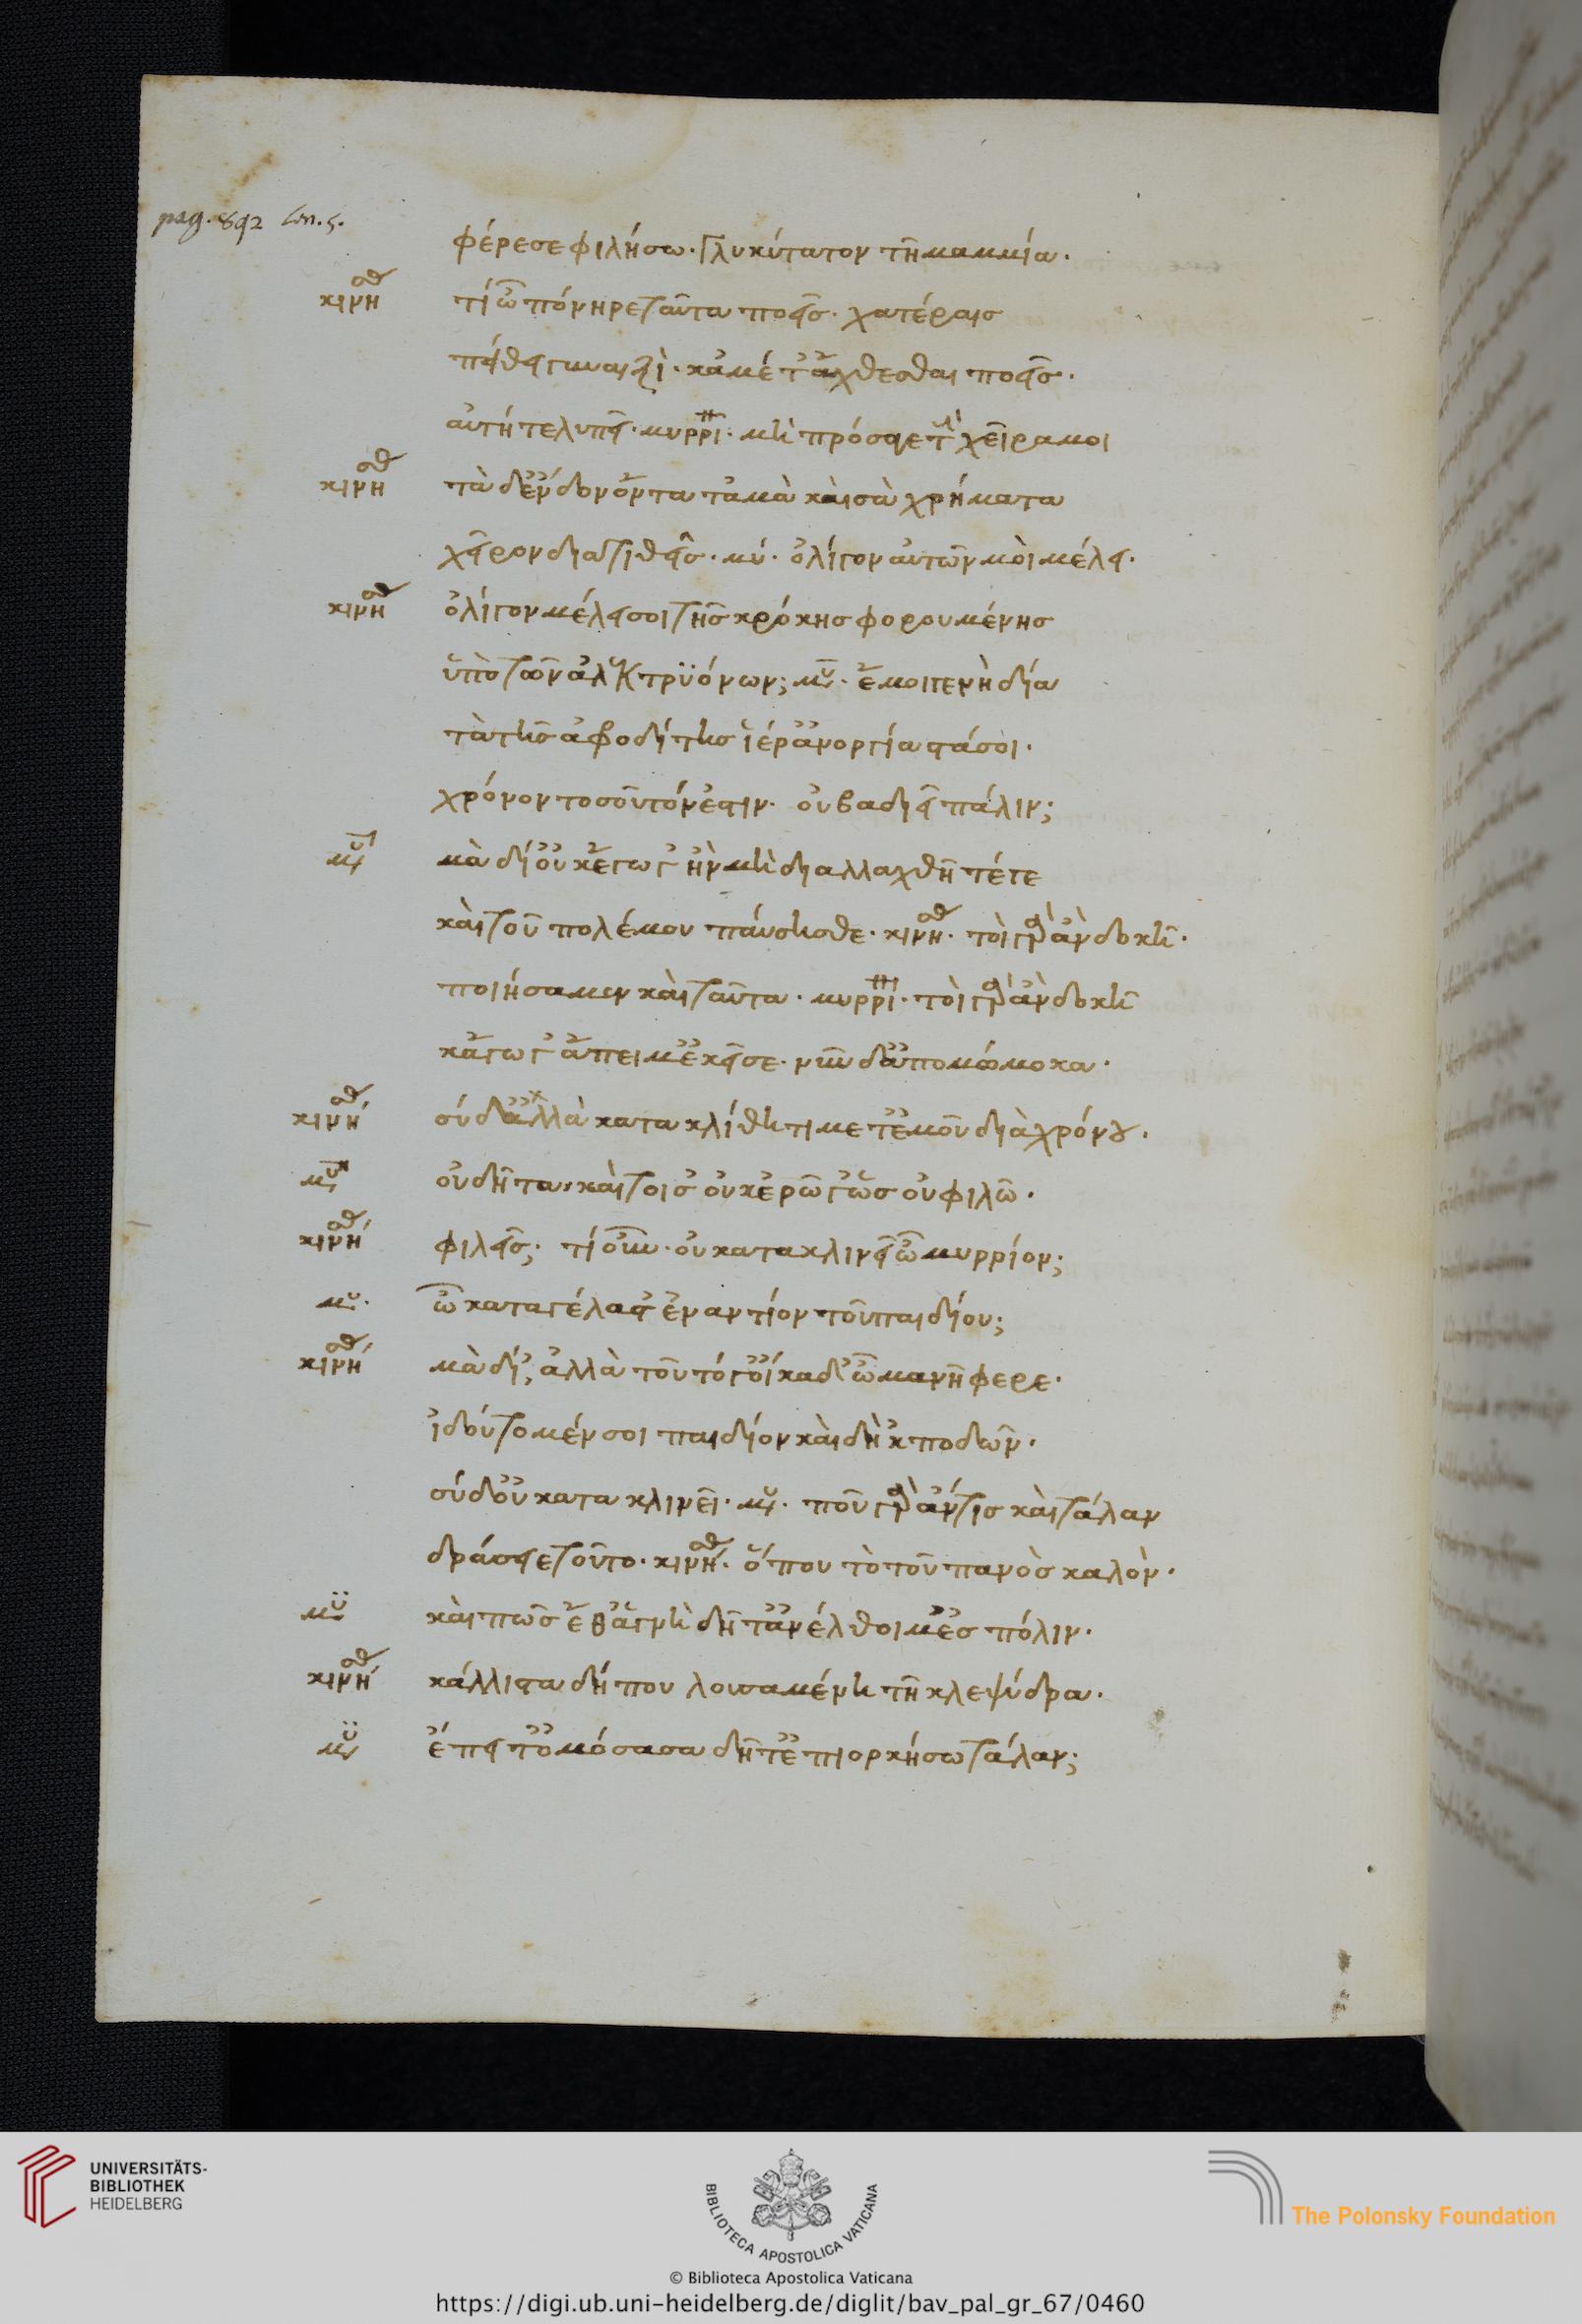 pag. 892 lin. 5.
φέρε σε φιλήσω. γλυκύτατον τῆ μαμμία.
κινη τί ὦ πόνηρε ταῦτα ποεῖσ. χατέραισ
πείθει γυναιξὶ. κἀμέ τ' ἄχθεσθαι ποεῖσ.
αὐτή τε λυπεῖ. μυρρι. μὴ πρόσαγε τ χεῖρα μοι
κινη τὰ δ' ἔνδον ὄντα τἀμὰ καὶ σὰ χρήματα
χεῖρον διατιθεῖσ. μύ. ὀλίγον αὐτῶν μοὶ μέλει.
κινη ὀλίγον μέλει σοι τῆσ κρόκησ φορουμένησ
ὑπὸ τῶν ἀλεκτρϋόνων; μυ. ἔμοιγε νὴ δία
τὰ τῆσ ἀφοδίτησ ἱέρ' ἀνοργίαστά σοι.
χρόνον τοσοῦτόν ἐστιν. οὐ βαδιεῖ πάλιν;
μυ μὰ δί' οὐκ ἔγωγ' ἢν μὴ διαλλαχθῆτέ γε
καὶ τοῦ πολέμου παύσησθε. κινη. τοὶγὰρ ἂν δοκῆ.
ποιήσομεν καὶ ταῦτα. μυρρι. τοὶγὰρ ἂν δοκῆ
κἄγωγ' ἄπειμ' ἐκεῖσε. νῦν δ' ἀπομώμοκα.
κινη σύ δ' ἀλλὰ κατακλίθητι μετ' ἐμοῦ διὰ χρόνου.
μυ οὐ δῆτα. καὶ τοι σ' οὐκ ἐρῶ γ' ὥσ οὐ φιλῶ.
κινη φιλεῖσ; τί οὖν. οὐ κατακλινεῖ ὦ μυρρίον;
μυ. ὦ καταγέλαστ' ἐναντίον τοῦ παιδίου;
κινη μὰ δί', ἀλλὰ τοῦτό γ' οἴκαδ' ὦ μανῆ φερε.
ἰδού το μέν σοι παιδίον καὶ δὴ 'κποδῶν.
σύ δ' οὐ κατακλινεῖ. μυ. ποῦ γὰρ ἄν τισ καὶ τάλαν
δράσειε τοῦτο. κινη. ὅπου τὸ τοῦ πανὸσ καλὸν.
μυ καὶ πῶσ ἔθ' ἁγνὴ δῆτ' ἀνέλθοιμ' ἐσ πόλιν.
κινη κάλλιστα δήπου λουσαμένη τῆ κλεψύδρα.
μυ ἔπειτ' ὀμόσασα δῆτ' ἐπιορκήσω τάλαν;
UNIVERSITÄTS-
BIBLIOTHEK
HEIDELBERG
BIBLIOTECA APOSTOLICA VATICANA
The Polonsky Foundation
© Biblioteca Apostolica Vaticana
https://digi.ub.uni-heidelberg.de/diglit/bav_pal_gr_67/0460